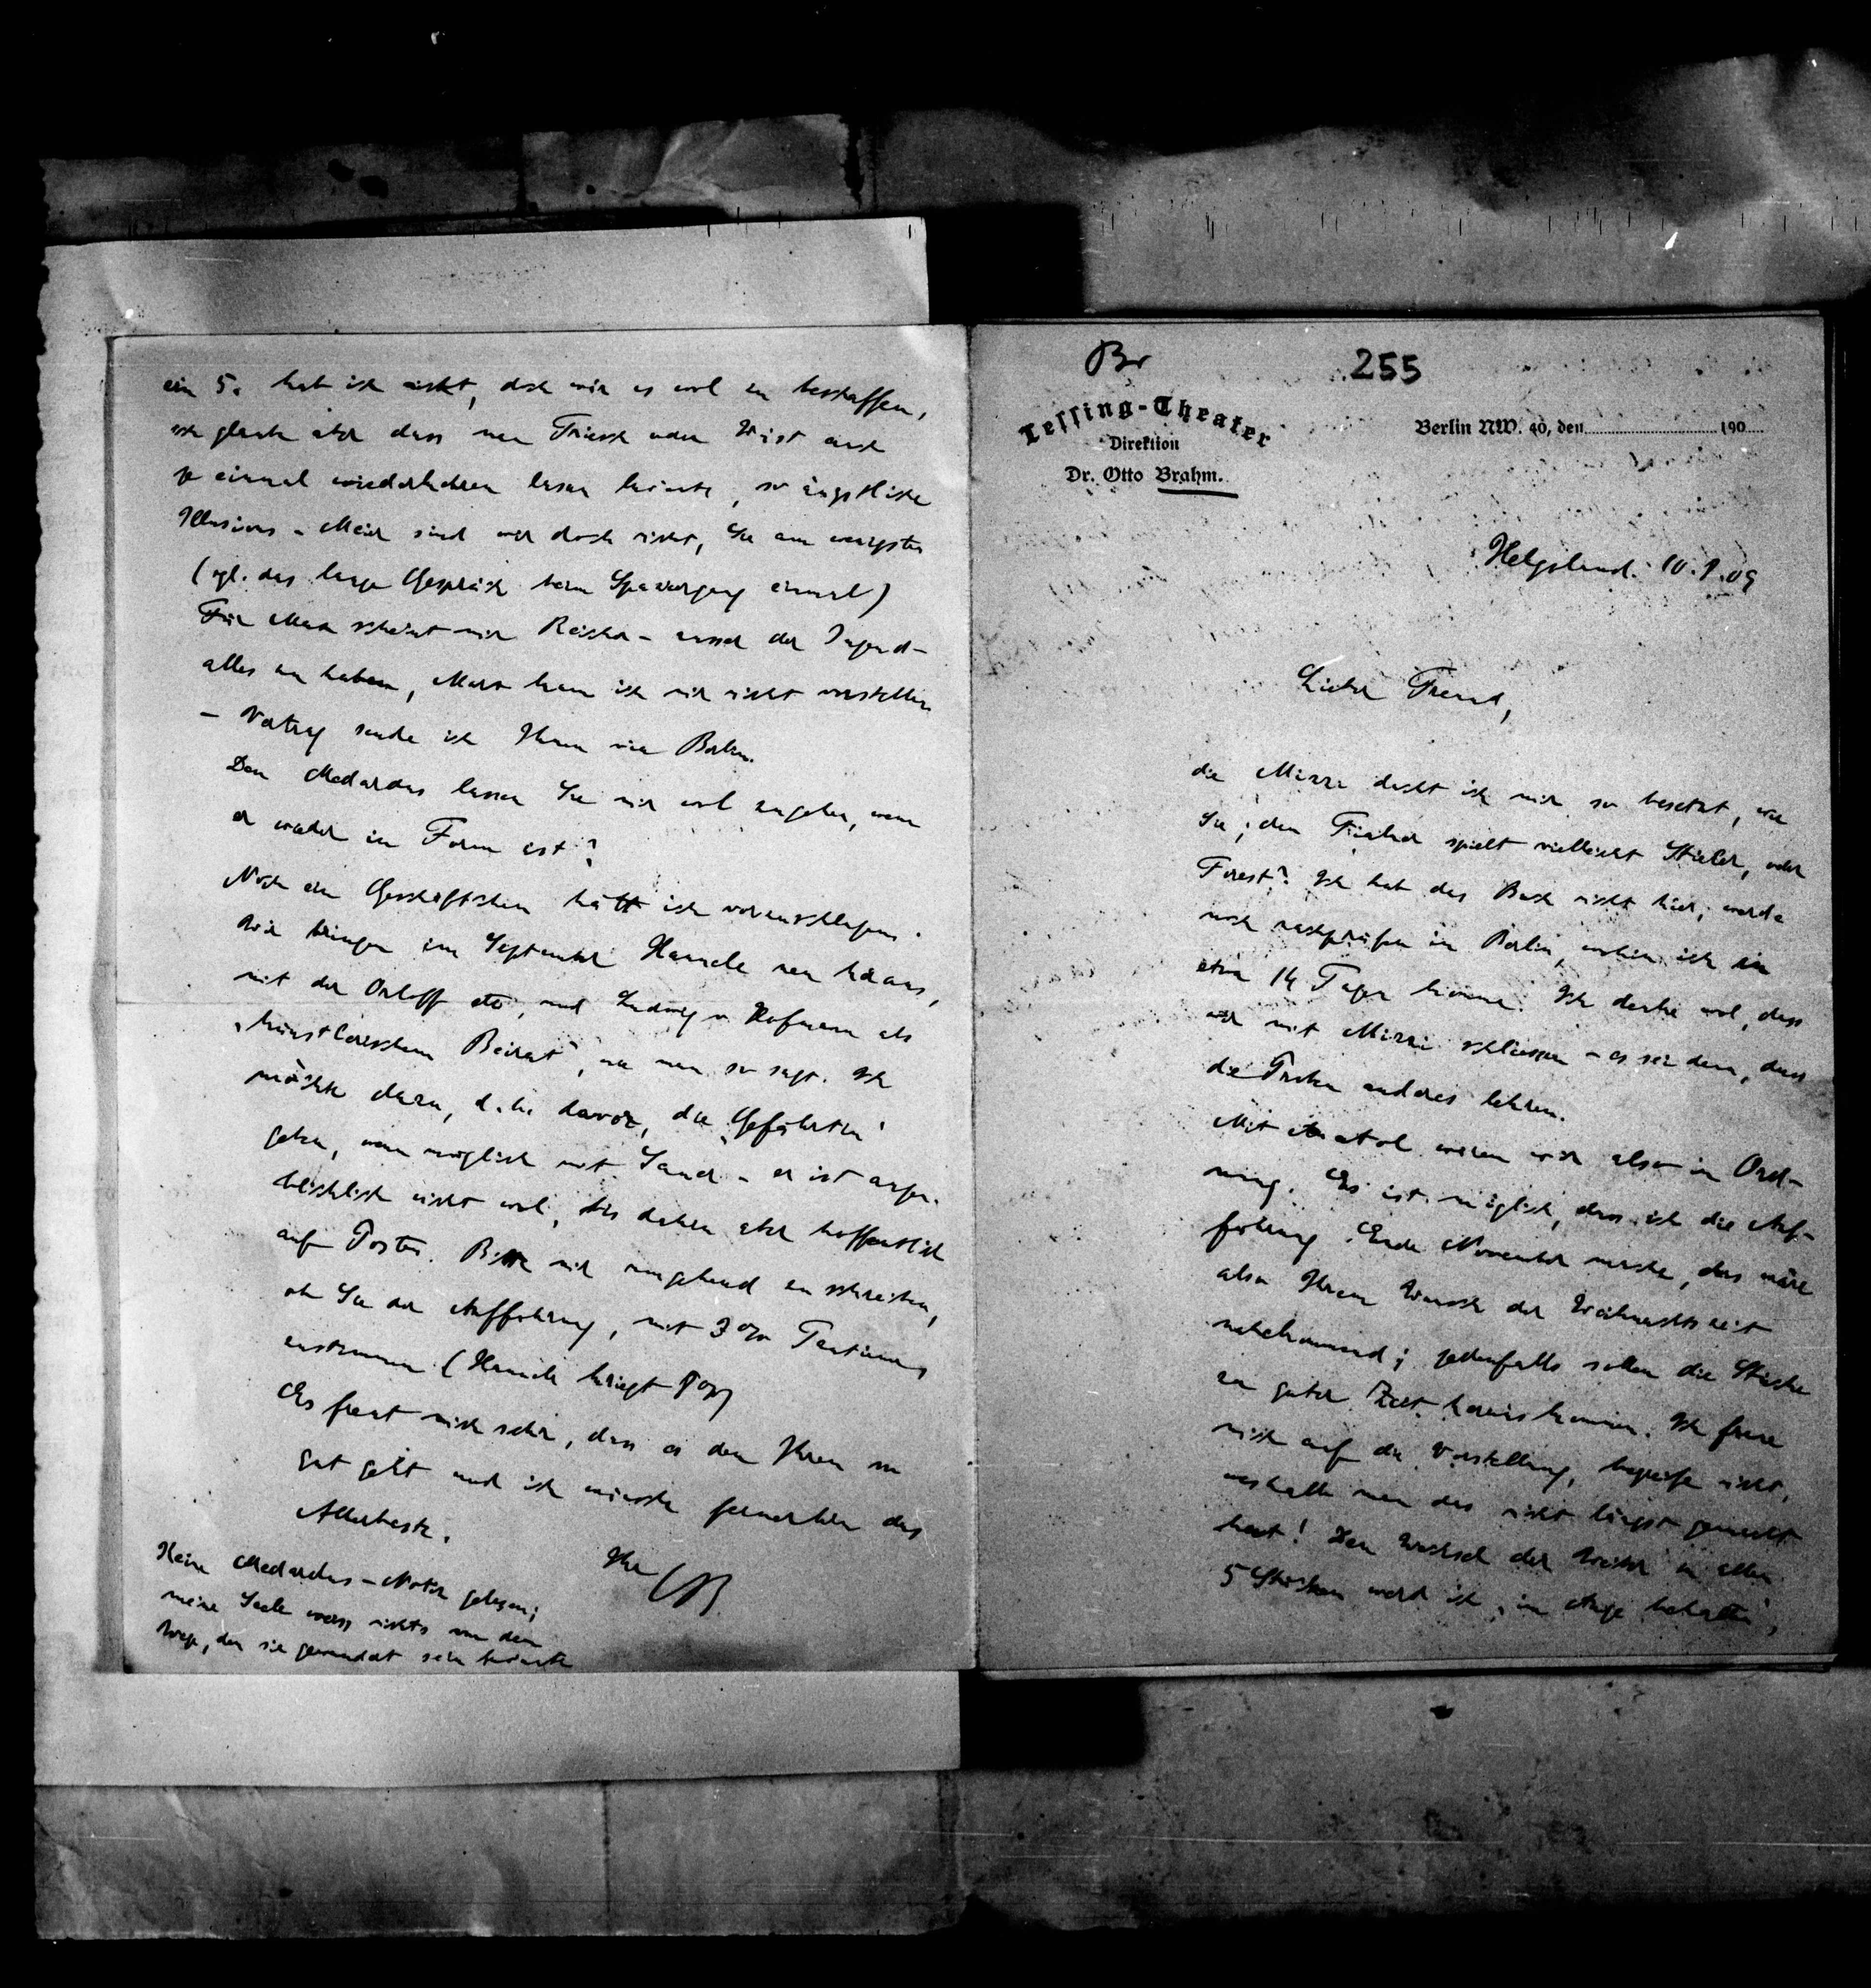 Br
255
Lessing-Theater
Direktion
Dr. Otto Brahm.
Berlin NW. 40, den 190
Helgoland. 10.8.09
Lieber Freund,
die Mizzi dacht ich mir so besetzt, wie
Sie; den Fischer spielt vielleicht Stieler, oder
Forest? Ich hab das Buch nicht hier, werde
noch nachprüfen in Berlin, wohin ich in
etwa 14 Tagen komme. Ich denke wol, dass
wir mit Mizzi schliessen – es sei denn, dass
die Proben anderes lehren.
Mit Anatol wären wir also in Ord-
nung. Es ist möglich, dass ich die Auf-
führung Ende November mache, das wäre
also Ihrem Wunsch der Weihnachtszeit
nahekommend; jedenfalls sollen die Stücke
zu guter Zeit herauskommen. Ich freue
mich auf die Vorstellung, begreife nicht,
weshalb man das nicht längst gemacht
hat! Den Wechsel der Weiber in allen
5 Stücken werd ich „im Auge behalten",
ein 5. hab ich nicht, doch wär es wol zu beschaffen,
ich glaube aber dass man Triesch oder Wüst auch
je einmal wiederkehren lassen könnte, so ängstliche
Illusions-Meier sind wir doch nicht, Sie am wenigsten
(vgl. das lange Gespräch beim Spaziergang einmal)
Für Max scheint mir Reicher – ausser der Jugend –
alles zu haben, Marr kann ich mir nicht vorstellen
– Vertrag sende ich Ihnen via Berlin.
Den Medardus lassen Sie mir wol zugehen, wenn
er wieder in Form ist?
Noch ein Geschäftchen hätt ich vorzuschlagen:
Wir bringen im September Hannele neu heraus,
mit der Orloff etc, und Ludwig v Hofmann als
„künstlerischem Beirat", wie man so sagt. Ich
möchte dazu, d.h. davor, die „Gefährtin"
geben, wenn möglich mit Sauer – er ist augen-
blicklich nicht wol, bis dahin aber hoffentlich
auf Posten. Bitte mir umgehend zu schreiben,
ob Sie der Aufführung, mit 3% Tantiemes
zustimmen (Hannele kriegt 7%)
Es freut mich sehr, dass es den Ihren so
gut geht und ich wünsche fernerhin das
Allerbeste.
Ihr OB
Keine Medardus-Notiz gelesen;
meine Seele weiss nichts von dem
Wege, den sie gewandelt sein könnte